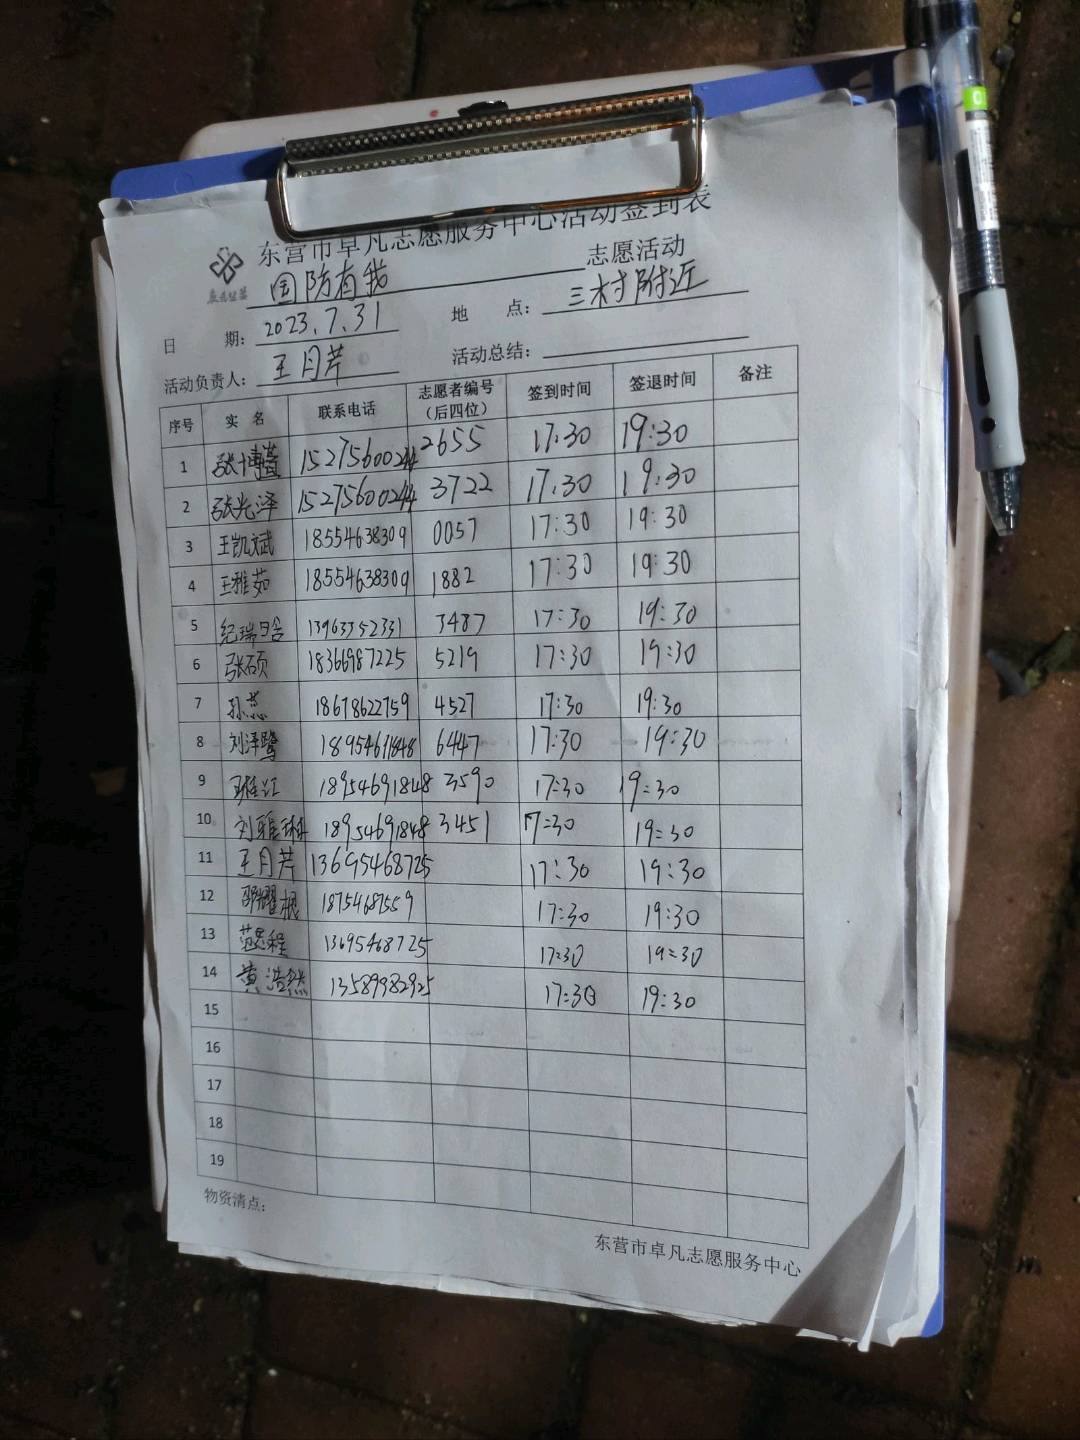 东营市卓凡志愿服务中心活动签到表
国防有我 志愿活动
日 期: 2023.7.31 地 点: 三村附近
活动负责人: 王月芹 活动总结:
序号 实 名 联系电话 志愿者编号（后四位） 签到时间 签退时间 备注
1 张博萱 15275600244 2655 17:30 19:30
2 张光泽 15275600244 3722 17:30 19:30
3 王凯斌 18554638309 0057 17:30 19:30
4 王雅茹 18554638309 1882 17:30 19:30
5 纪瑞晗 13963352331 3487 17:30 19:30
6 张硕 18366987225 5219 17:30 19:30
7 孙蕊 18678622759 4527 17:30 19:30
8 刘泽鹭 18954691848 6447 17:30 19:30
9 18954691848 3590 17:30 19:30
10 刘雅琳 18954691848 3451 17:30 19:30
11 王月芹 13695468725 17:30 19:30
12 邵耀根 18754687559 17:30 19:30
13 13695468725 17:30 19:30
14 黄浩然 13589982925 17:30 19:30
15
16
17
18
19
物资清点:
东营市卓凡志愿服务中心